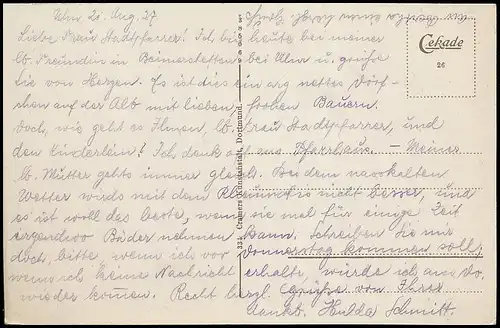 Ulm 21. Aug. 27
Liebe Frau Stadtpfarrer! Ich bin heute bei meiner
lb. Freundin in Beimerstetten bei Ulm u. grüße
Sie von Herzen. Es ist dies ein arg nettes Dörf-
chen auf der Alb mit lieben, frohen Bauern.
Doch, wie geht es Ihnen, lb. Frau Stadtpfarrer, und
den Kinderlein! Ich denk oft ans Pfarrhaus. – Meiner
lb. Mutter gehts immer gleich. Bei dem nasskalten
Wetter wirds mit dem Rheuma nicht besser, und
es ist woll das beste, wenn sie mal für einige Zeit
irgendwo Bäder nehmen kann. Schreiben Sie mir
doch, bitte, wenn ich vor Donnerstag kommen soll;
wenn ich keine Nachricht erhalte, würde ich am Do.
wieder kommen. Recht herzl. Grüße von Ihrer
dankb. Hulda Schmitt.
Cekade
26
Cramers Kunstanstalt, Dortmund